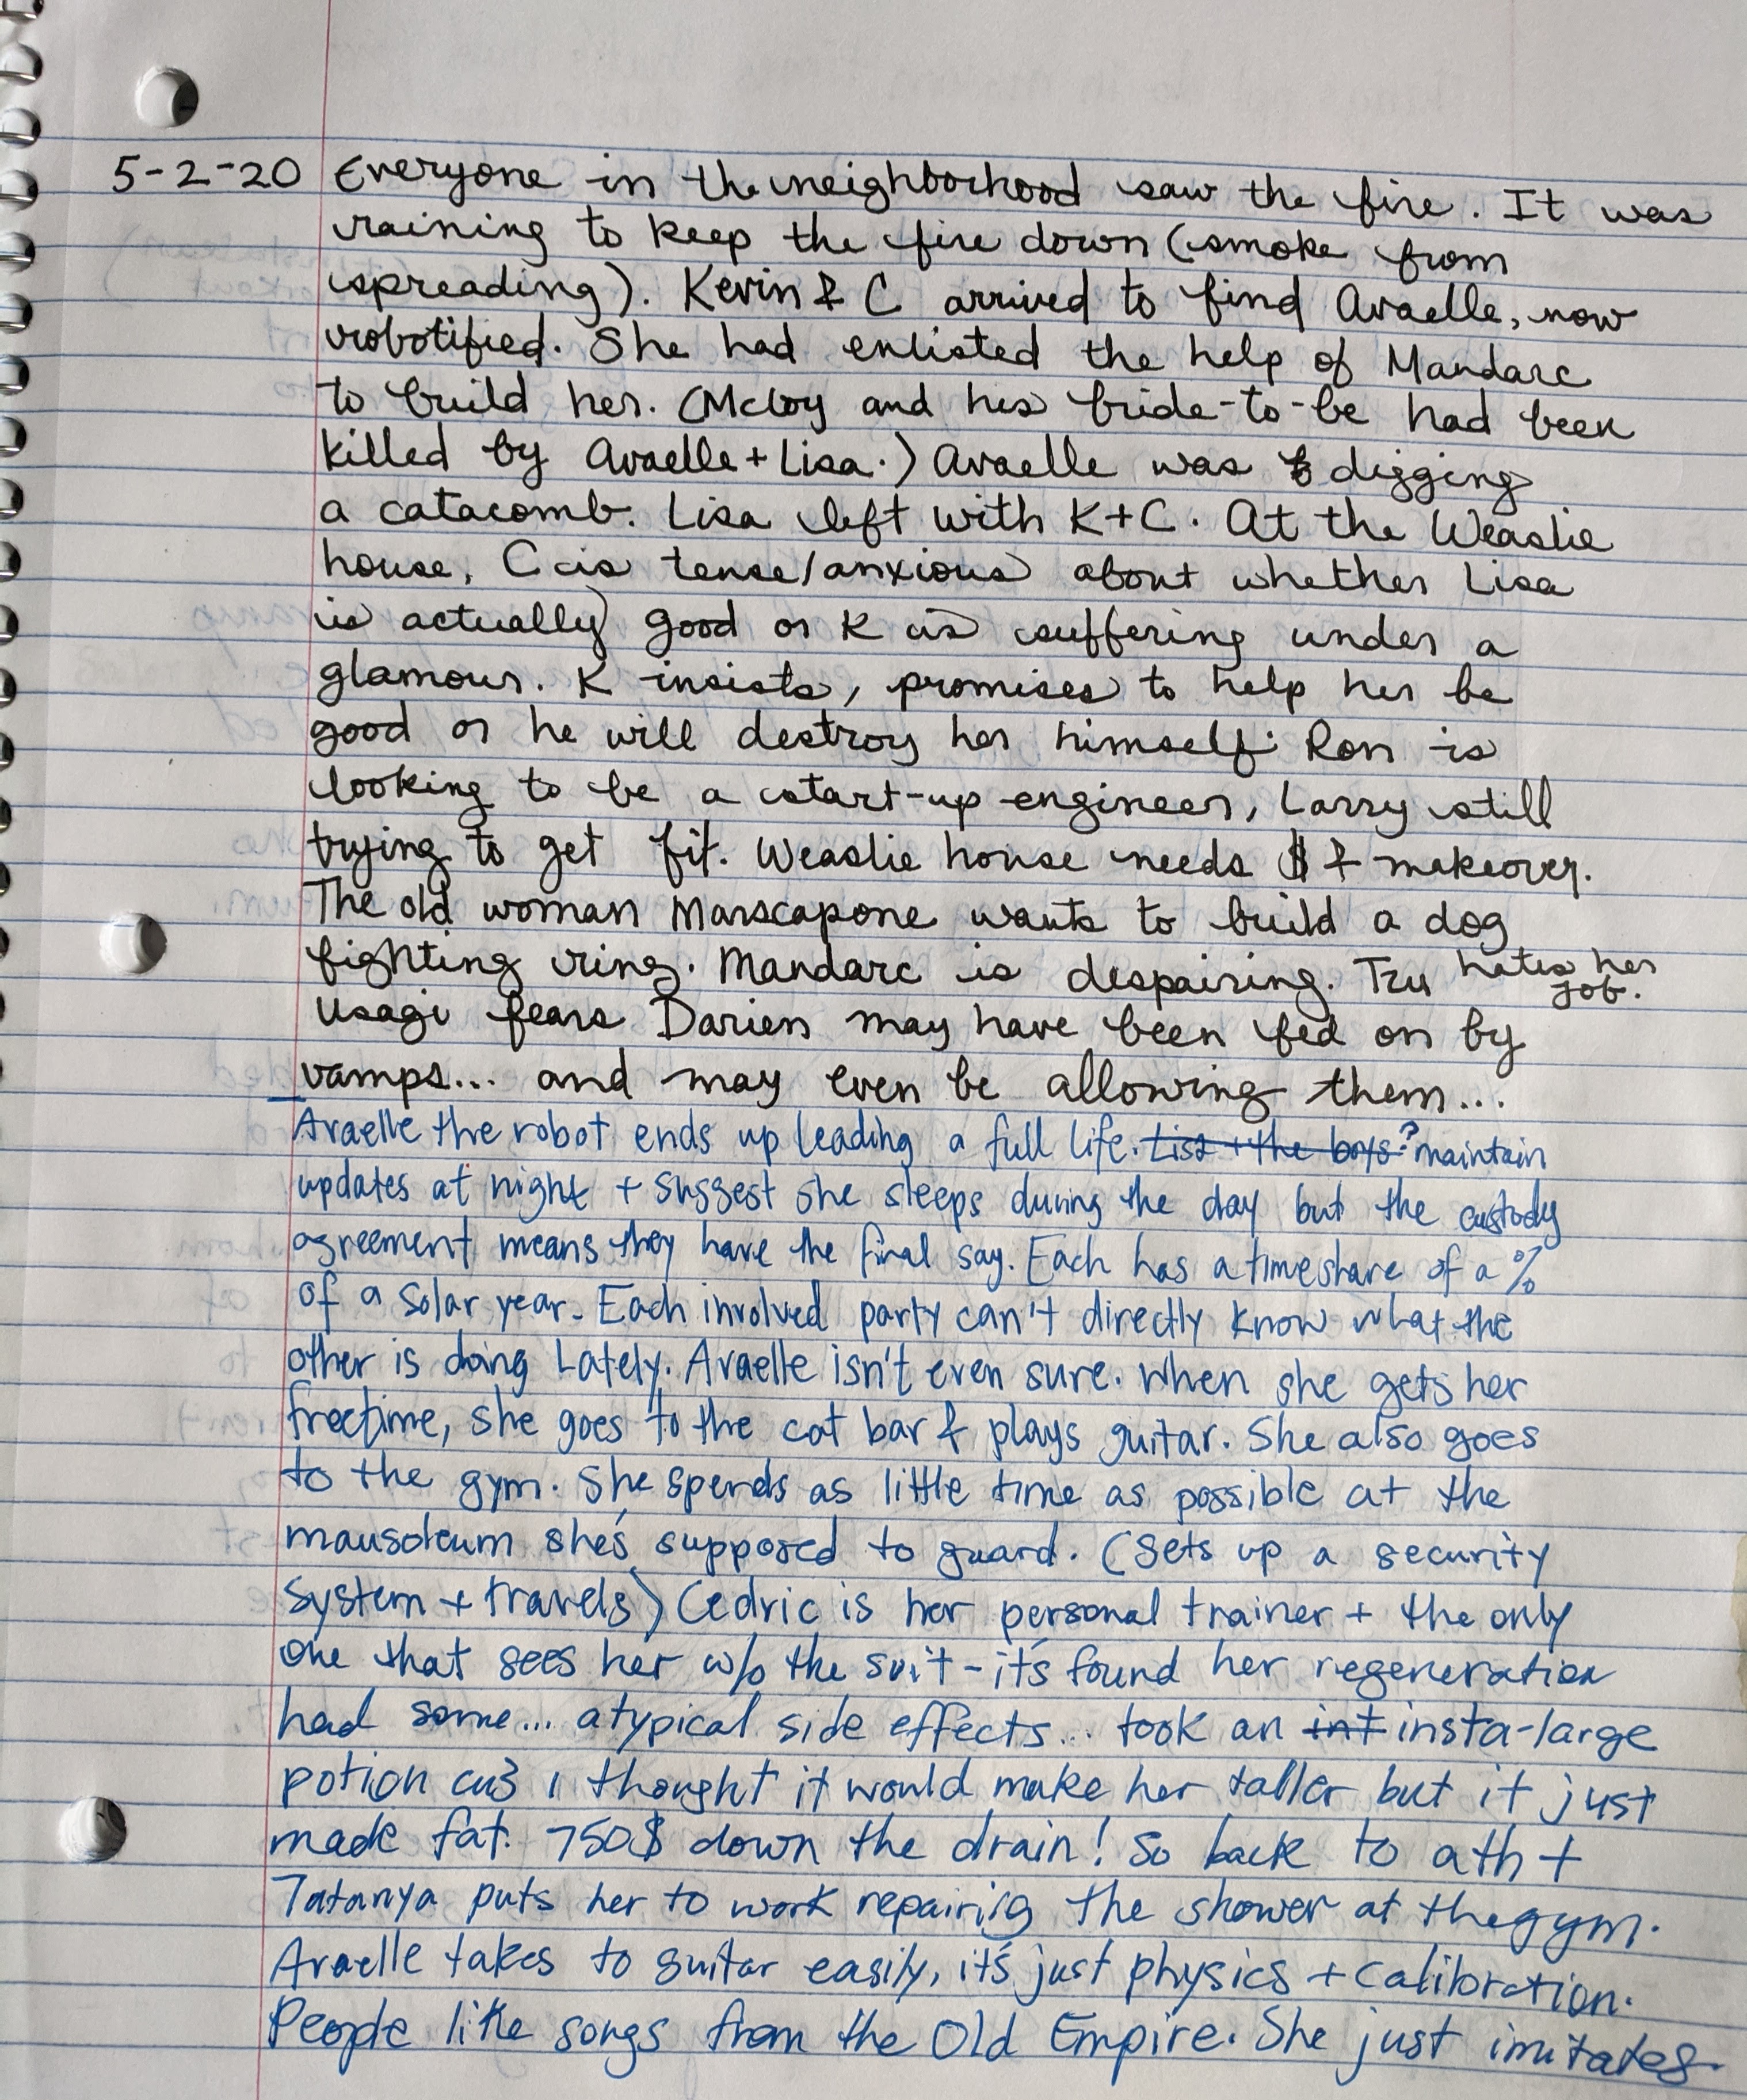 5-2-20 Everyone in the neighborhood saw the fire. It was
raining to keep the fire down (smoke from
spreading). Kevin & C arrived to find Avaelle, now
robotified. She had enlisted the help of Mandarc
to build her. (McCoy and his bride-to-be had been
killed by Avaelle + Lisa.) Avaelle was digging
a catacomb. Lisa left with K+C. At the Weaslie
house, C is tense/anxious about whether Lisa
is actually good or K is suffering under a
glamour. K insists, promises to help her be
good or he will destroy her himself. Ron is
looking to be a start-up engineer, Larry still
trying to get fit. Weaslie house needs $ & makeover.
The old woman Marscapone wants to build a dog
fighting ring. Mandarc is despairing. Tru hates her job.
Usagi fears Darien may have been fed on by
vamps... and may even be allowing them...
Avaelle the robot ends up leading a full life. Lisa + the boys? maintain
updates at night + suggest she sleeps during the day but the custody
agreement means they have the final say. Each has a timeshare of a %
of a solar year. Each involved party can't directly know what the
other is doing Lately. Avaelle isn't even sure. When she gets her
freetime, she goes to the cat bar & plays guitar. She also goes
to the gym. She spends as little time as possible at the
mausoleum she's supposed to guard. (Sets up a security
system + travels) Cedric is her personal trainer + the only
one that sees her w/o the suit - it's found her regeneration
had some... atypical side effects... took an int insta-large
potion cuz I thought it would make her taller but it just
made fat. 750$ down the drain! So back to ath +
Tatanya puts her to work repairing the shower at the gym.
Avaelle takes to guitar easily, it's just physics + calibration.
People like songs from the Old Empire. She just imitates